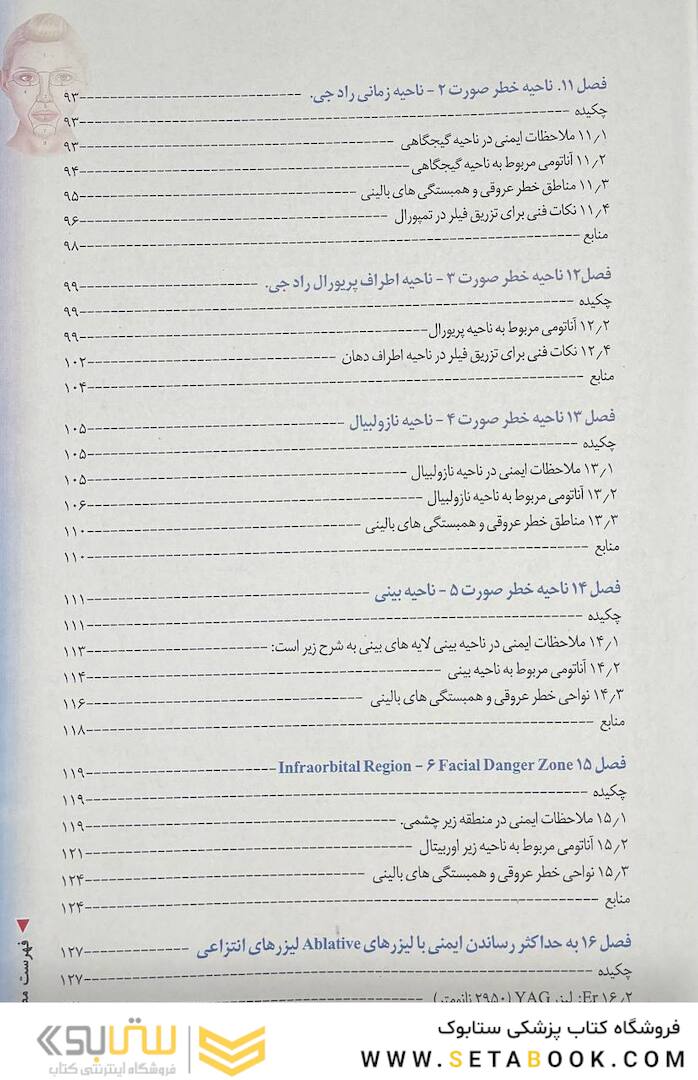 فصل ۱۱. ناحیه خطر صورت ۲ - ناحیه زمانی راد جی. ۹۳
چکیده ۹۳
۱۱٫۱ ملاحظات ایمنی در ناحیه گیجگاهی ۹۳
۱۱٫۲ آناتومی مربوط به ناحیه گیجگاهی ۹۴
۱۱٫۳ مناطق خطر عروقی و همبستگی های بالینی ۹۵
۱۱٫۴ نکات فنی برای تزریق فیلر در تمپورال ۹۶
منابع ۹۸
فصل۱۲ ناحیه خطر صورت ۳ - ناحیه اطراف پریورال راد جی. ۹۹
چکیده ۹۹
۱۲٫۲ آناتومی مربوط به ناحیه پریورال ۹۹
۱۲٫۴ نکات فنی برای تزریق فیلر در ناحیه اطراف دهان ۱۰۲
منابع ۱۰۴
فصل ۱۳ ناحیه خطر صورت ۴ - ناحیه نازولبیال ۱۰۵
چکیده ۱۰۵
۱۳٫۱ ملاحظات ایمنی در ناحیه نازولبیال ۱۰۵
۱۳٫۲ آناتومی مربوط به ناحیه نازولبیال ۱۰۶
۱۳٫۳ مناطق خطر عروقی و همبستگی های بالینی ۱۱۰
منابع ۱۱۰
فصل ۱۴ ناحیه خطر صورت ۵ - ناحیه بینی ۱۱۱
چکیده ۱۱۱
۱۴٫۱ ملاحظات ایمنی در ناحیه بینی لایه های بینی به شرح زیر است: ۱۱۳
۱۴٫۲ آناتومی مربوط به ناحیه بینی ۱۱۴
۱۴٫۳ نواحی خطر عروقی و همبستگی های بالینی ۱۱۶
منابع ۱۱۸
فصل ۱۵ Infraorbital Region - ۶ Facial Danger Zone ۱۱۹
چکیده ۱۱۹
۱۵٫۱ ملاحظات ایمنی در منطقه زیر چشمی. ۱۱۹
۱۵٫۲ آناتومی مربوط به ناحیه زیر اوربیتال ۱۲۱
۱۵٫۳ نواحی خطر عروقی و همبستگی های بالینی ۱۲۴
منابع ۱۲۴
فصل ۱۶ به حداکثر رساندن ایمنی با لیزرهای Ablative لیزرهای انتزاعی ۱۲۷
چکیده ۱۲۷
۱۶٫۲ Er: لیزر YAG (۲۹۵۰ نانومتر)
فهرست
فروشگاه کتاب پزشکی ستابوک
WWW.SETABOOK.COM
ستابوک
فروشگاه اینترنتی کتاب